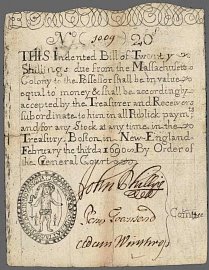 Nº 1009 20ˢ
THIS Indented Bill of Twenty
Shillings due from the Massachusets
Colony to the Possessor shall be in value
equal to money & shall be accordingly
accepted by the Treasurer and Receivers
subordinate to him in all Publick paymts
and for any Stock at any time in the
Treasury, Boston, in New-England
February the third 1690 By Order of
the General Court
John Phillips
Penn Townsend
Comitee
Adam Winthrop